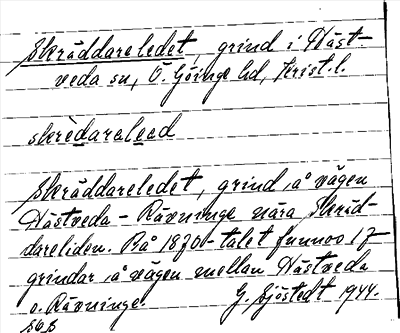 Skräddareledet, grind i Häst-
veda sn, Ö. Göinge hd, Krist. l.
skrèdaralead
Skräddareledet, grind å vägen
Hästveda - Rävninge nära Skräd-
dareliden. På 1870-talet funnos 17
grindar å vägen mellan Hästveda
o. Rävninge. G. Sjöstedt 1944.